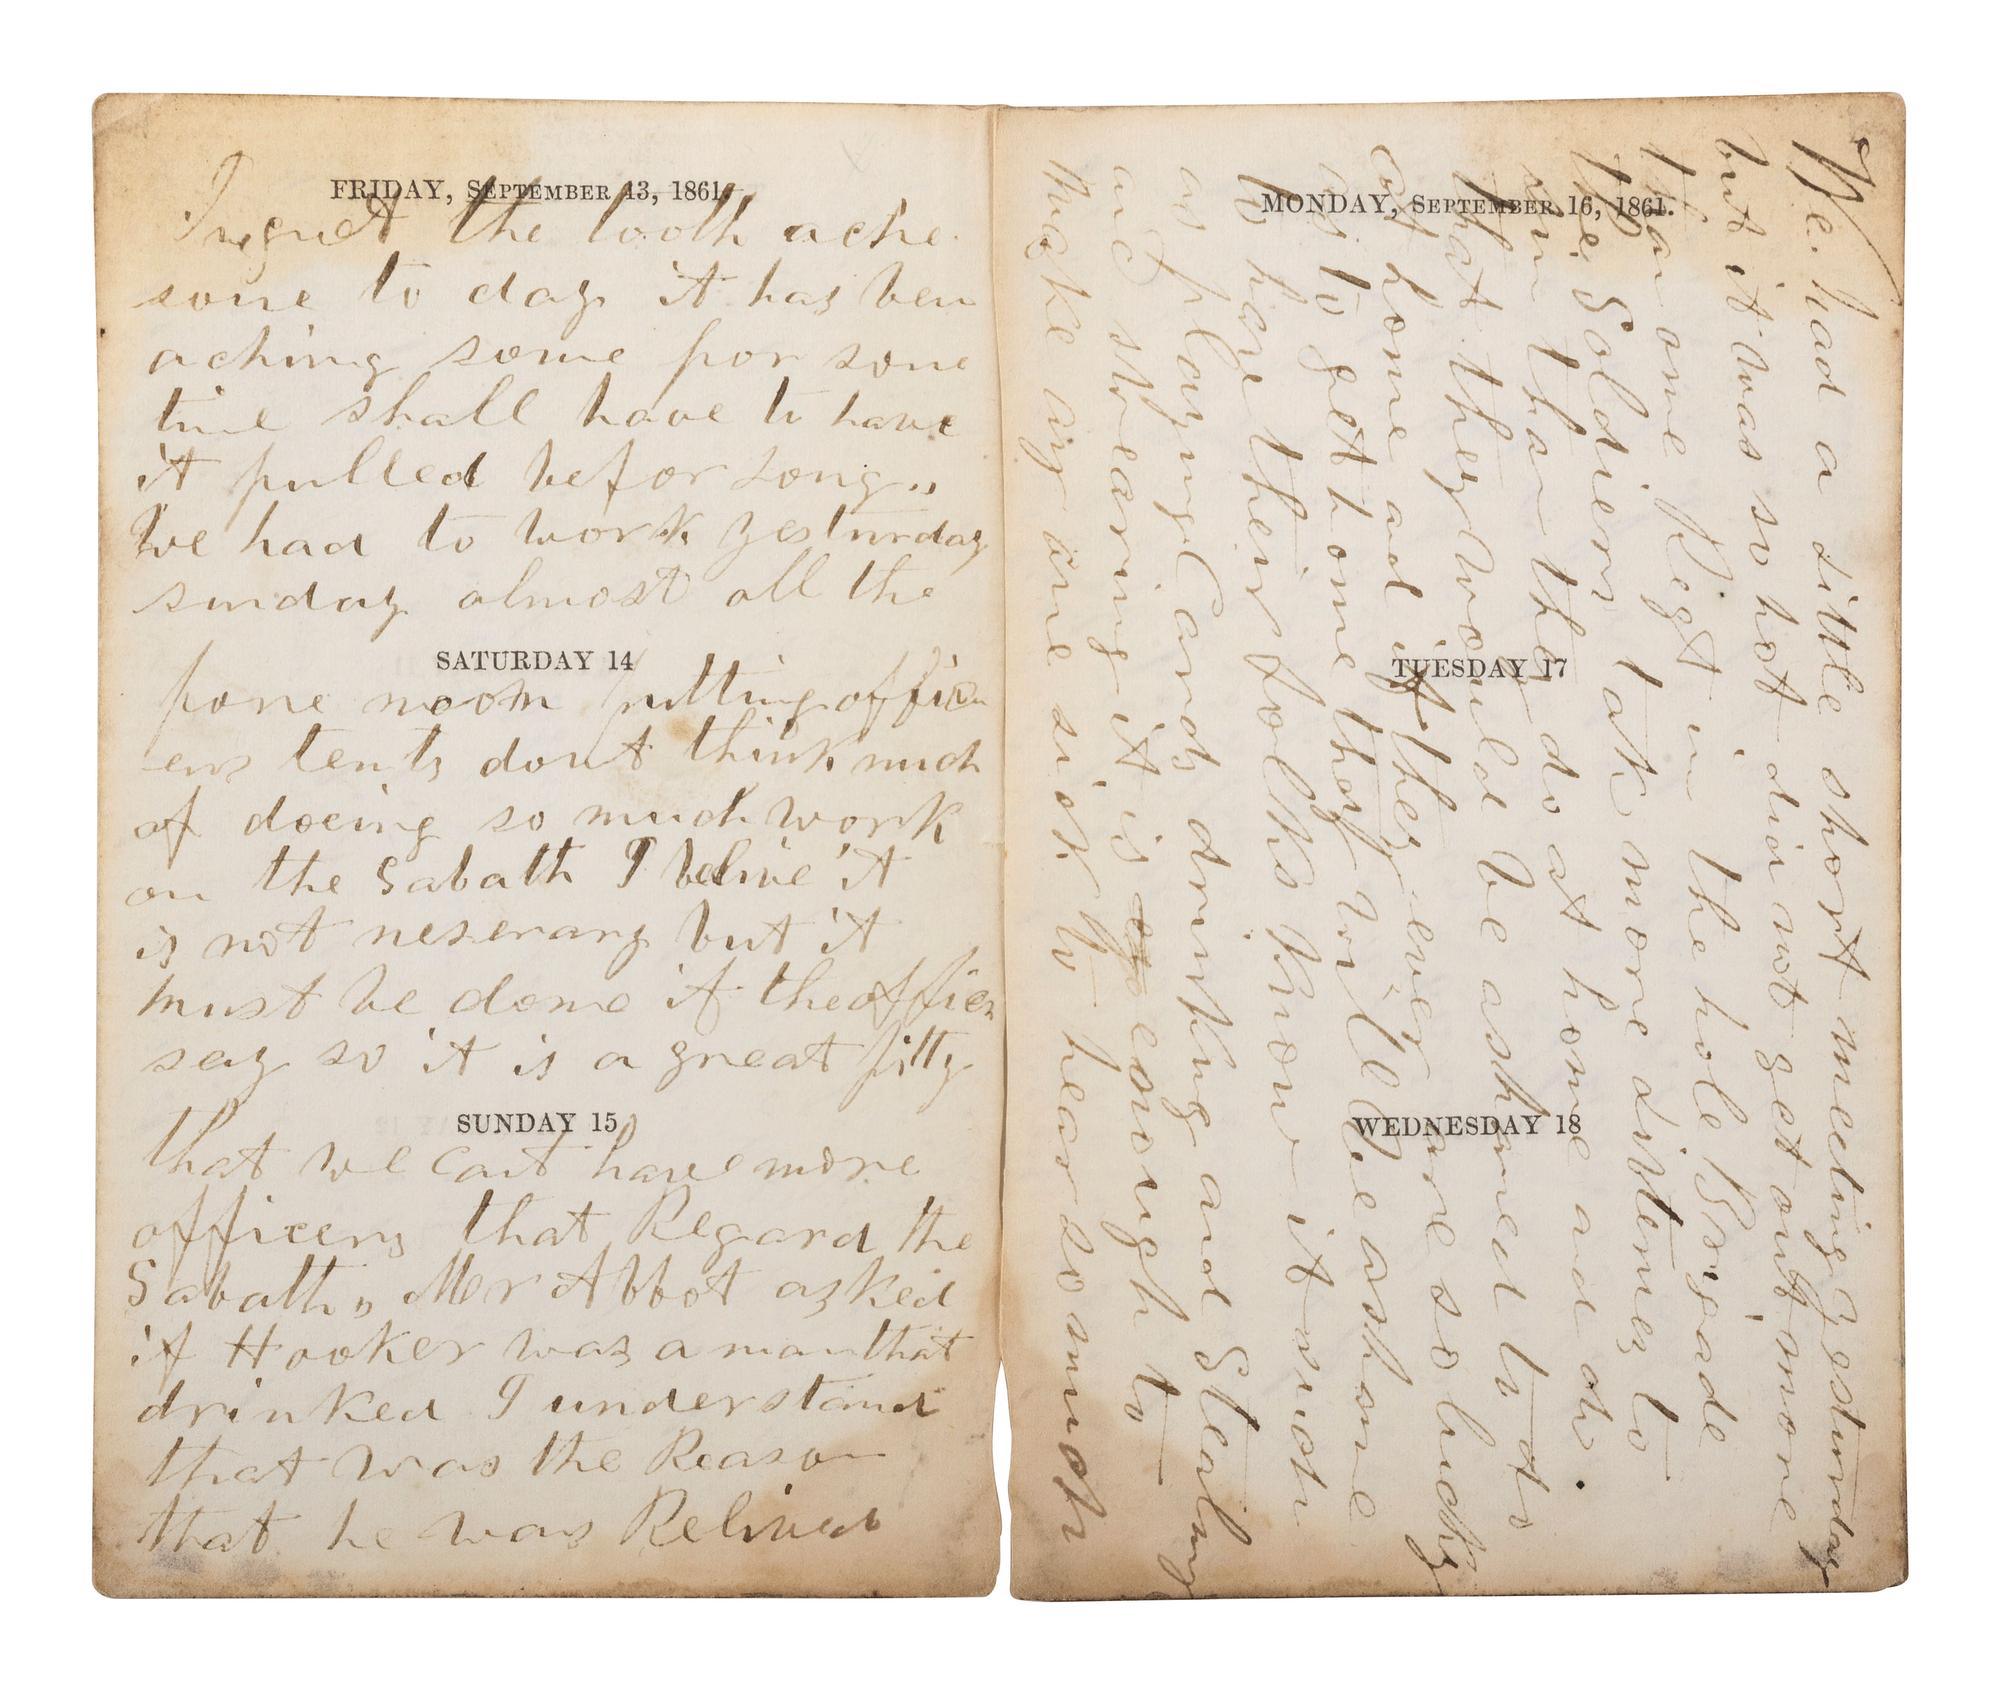 FRIDAY, SEPTEMBER 13, 1861.
I regret the tooth ache
some to day it has ben
aching some for some
time shall have to have
it pulled befor long,,
We had to work yesturday
sunday almost all the
SATURDAY 14
fore noon putting offic
ers tents dont think much
of doeing so much work
on the Sabath I belive it
is not neserary but it
must be done if the officer
say so it is a great pitty
SUNDAY 15
that we cant have more
officers that Regard the
Sabath,, Mer Abbot asked
if Hooker was a man that
drinked I understand
that was the Reason
that he was Relived
MONDAY, SEPTEMBER 16, 1861.
TUESDAY 17
WEDNESDAY 18
We had a little short meeting yesturday
but it was so hot did not get out more
than one Regt in the hole Brigade
the Soldiers take more distenes to
sin than they do at home and oh.
that they would be ashamed to do
at home ad if they ever are so lucky
as to get home they will be ashome
to have their folks know it such
as playing Cards drinking and Stealing
and swearing it is enough to
make any one sick to hear so much